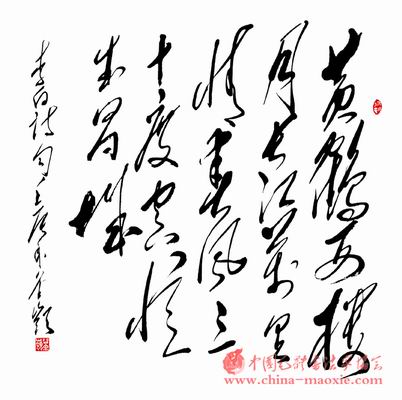 黄鶴西樓
月长江萬里
情春风三
十度空憶
武昌城
李白诗句
中国毛体书法家协会
www.china-maoxie.com